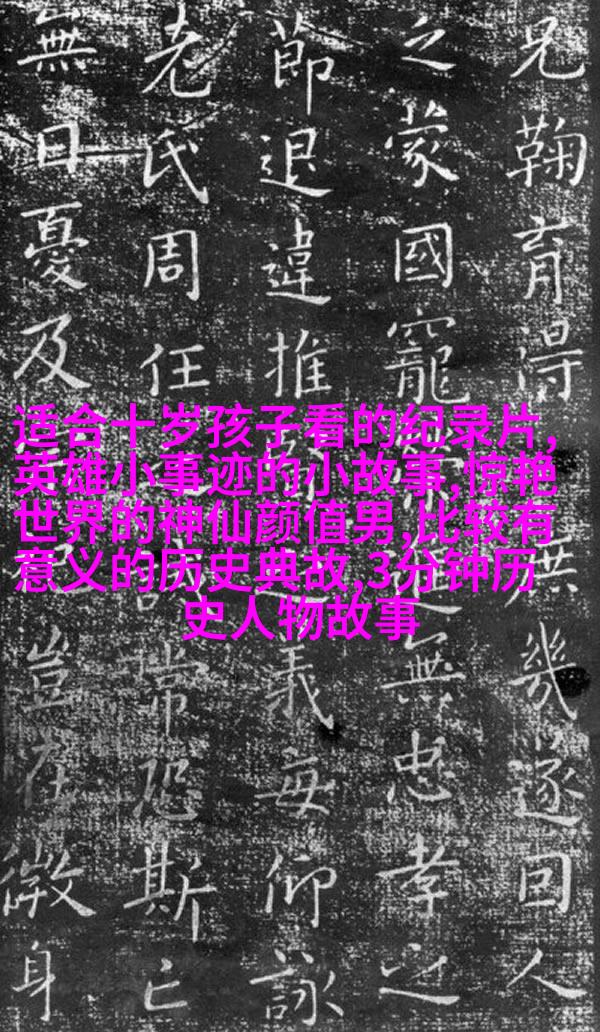 兄鞠育得庶幾遂因人
乏蒙國寵進無忠孝之
節退違推義每仰詠
老氏周任常恐斯亡
無日憂及豈在微身
适合十岁孩子看的纪录片,
英雄小事迹的小故事,惊艳
世界的神仙颜值男,比较有
意义的历史典故,3分钟历
史人物故事